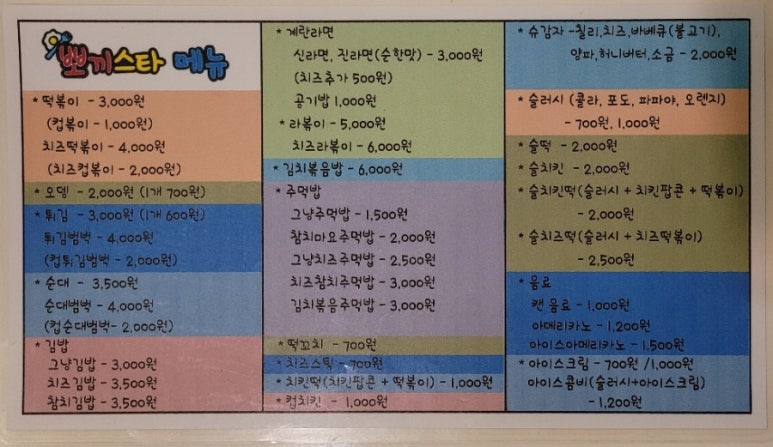 뽀끼스타 메뉴
* 떡볶이 - 3,000원
(컵볶이 - 1,000원)
치즈떡볶이 - 4,000원
(치즈컵볶이 - 2,000원)
* 오뎅 - 2,000원 (1개 700원)
* 튀김 - 3,000원 (1개 600원)
튀김범벅 - 4,000원
(컵튀김범벅 - 2,000원)
* 순대 - 3,500원
순대범벅 - 4,000원
(컵순대범벅- 2,000원)
* 김밥
그냥김밥 - 3,000원
치즈김밥 - 3,500원
참치김밥 - 3,500원
* 계란라면
신라면, 진라면(순한맛) - 3,000원
(치즈추가 500원)
공기밥 1,000원
* 라볶이 - 5,000원
치즈라볶이 - 6,000원
* 김치볶음밥 - 6,000원
* 주먹밥
그냥주먹밥 - 1,500원
참치마요주먹밥 - 2,000원
그냥치즈주먹밥 - 2,500원
치즈참치주먹밥 - 3,000원
김치볶음주먹밥 - 3,000원
* 떡꼬치 - 700원
* 치즈스틱 - 700원
* 치킨떡(치킨팝콘 + 떡볶이) - 1,000원
* 컵치킨 - 1,000원
* 슈감자 -칠리,치즈,바베큐(불고기),
양파,허니버터,소금 - 2,000원
* 슬러시 (콜라, 포도, 파파야, 오렌지)
- 700원, 1,000원
* 슬떡 - 2,000원
* 슬치킨 - 2,000원
* 슬치킨떡(슬러시 + 치킨팝콘 + 떡볶이)
- 2,000원
* 슬치즈떡(슬러시 + 치즈떡볶이)
- 2,500원
* 음료
캔 음료 - 1,000원
아메리카노 - 1,200원
아이스아메리카노 - 1,500원
* 아이스크림 - 700원 /1,000원
아이스콤비(슬러시+아이스크림)
- 1,200원